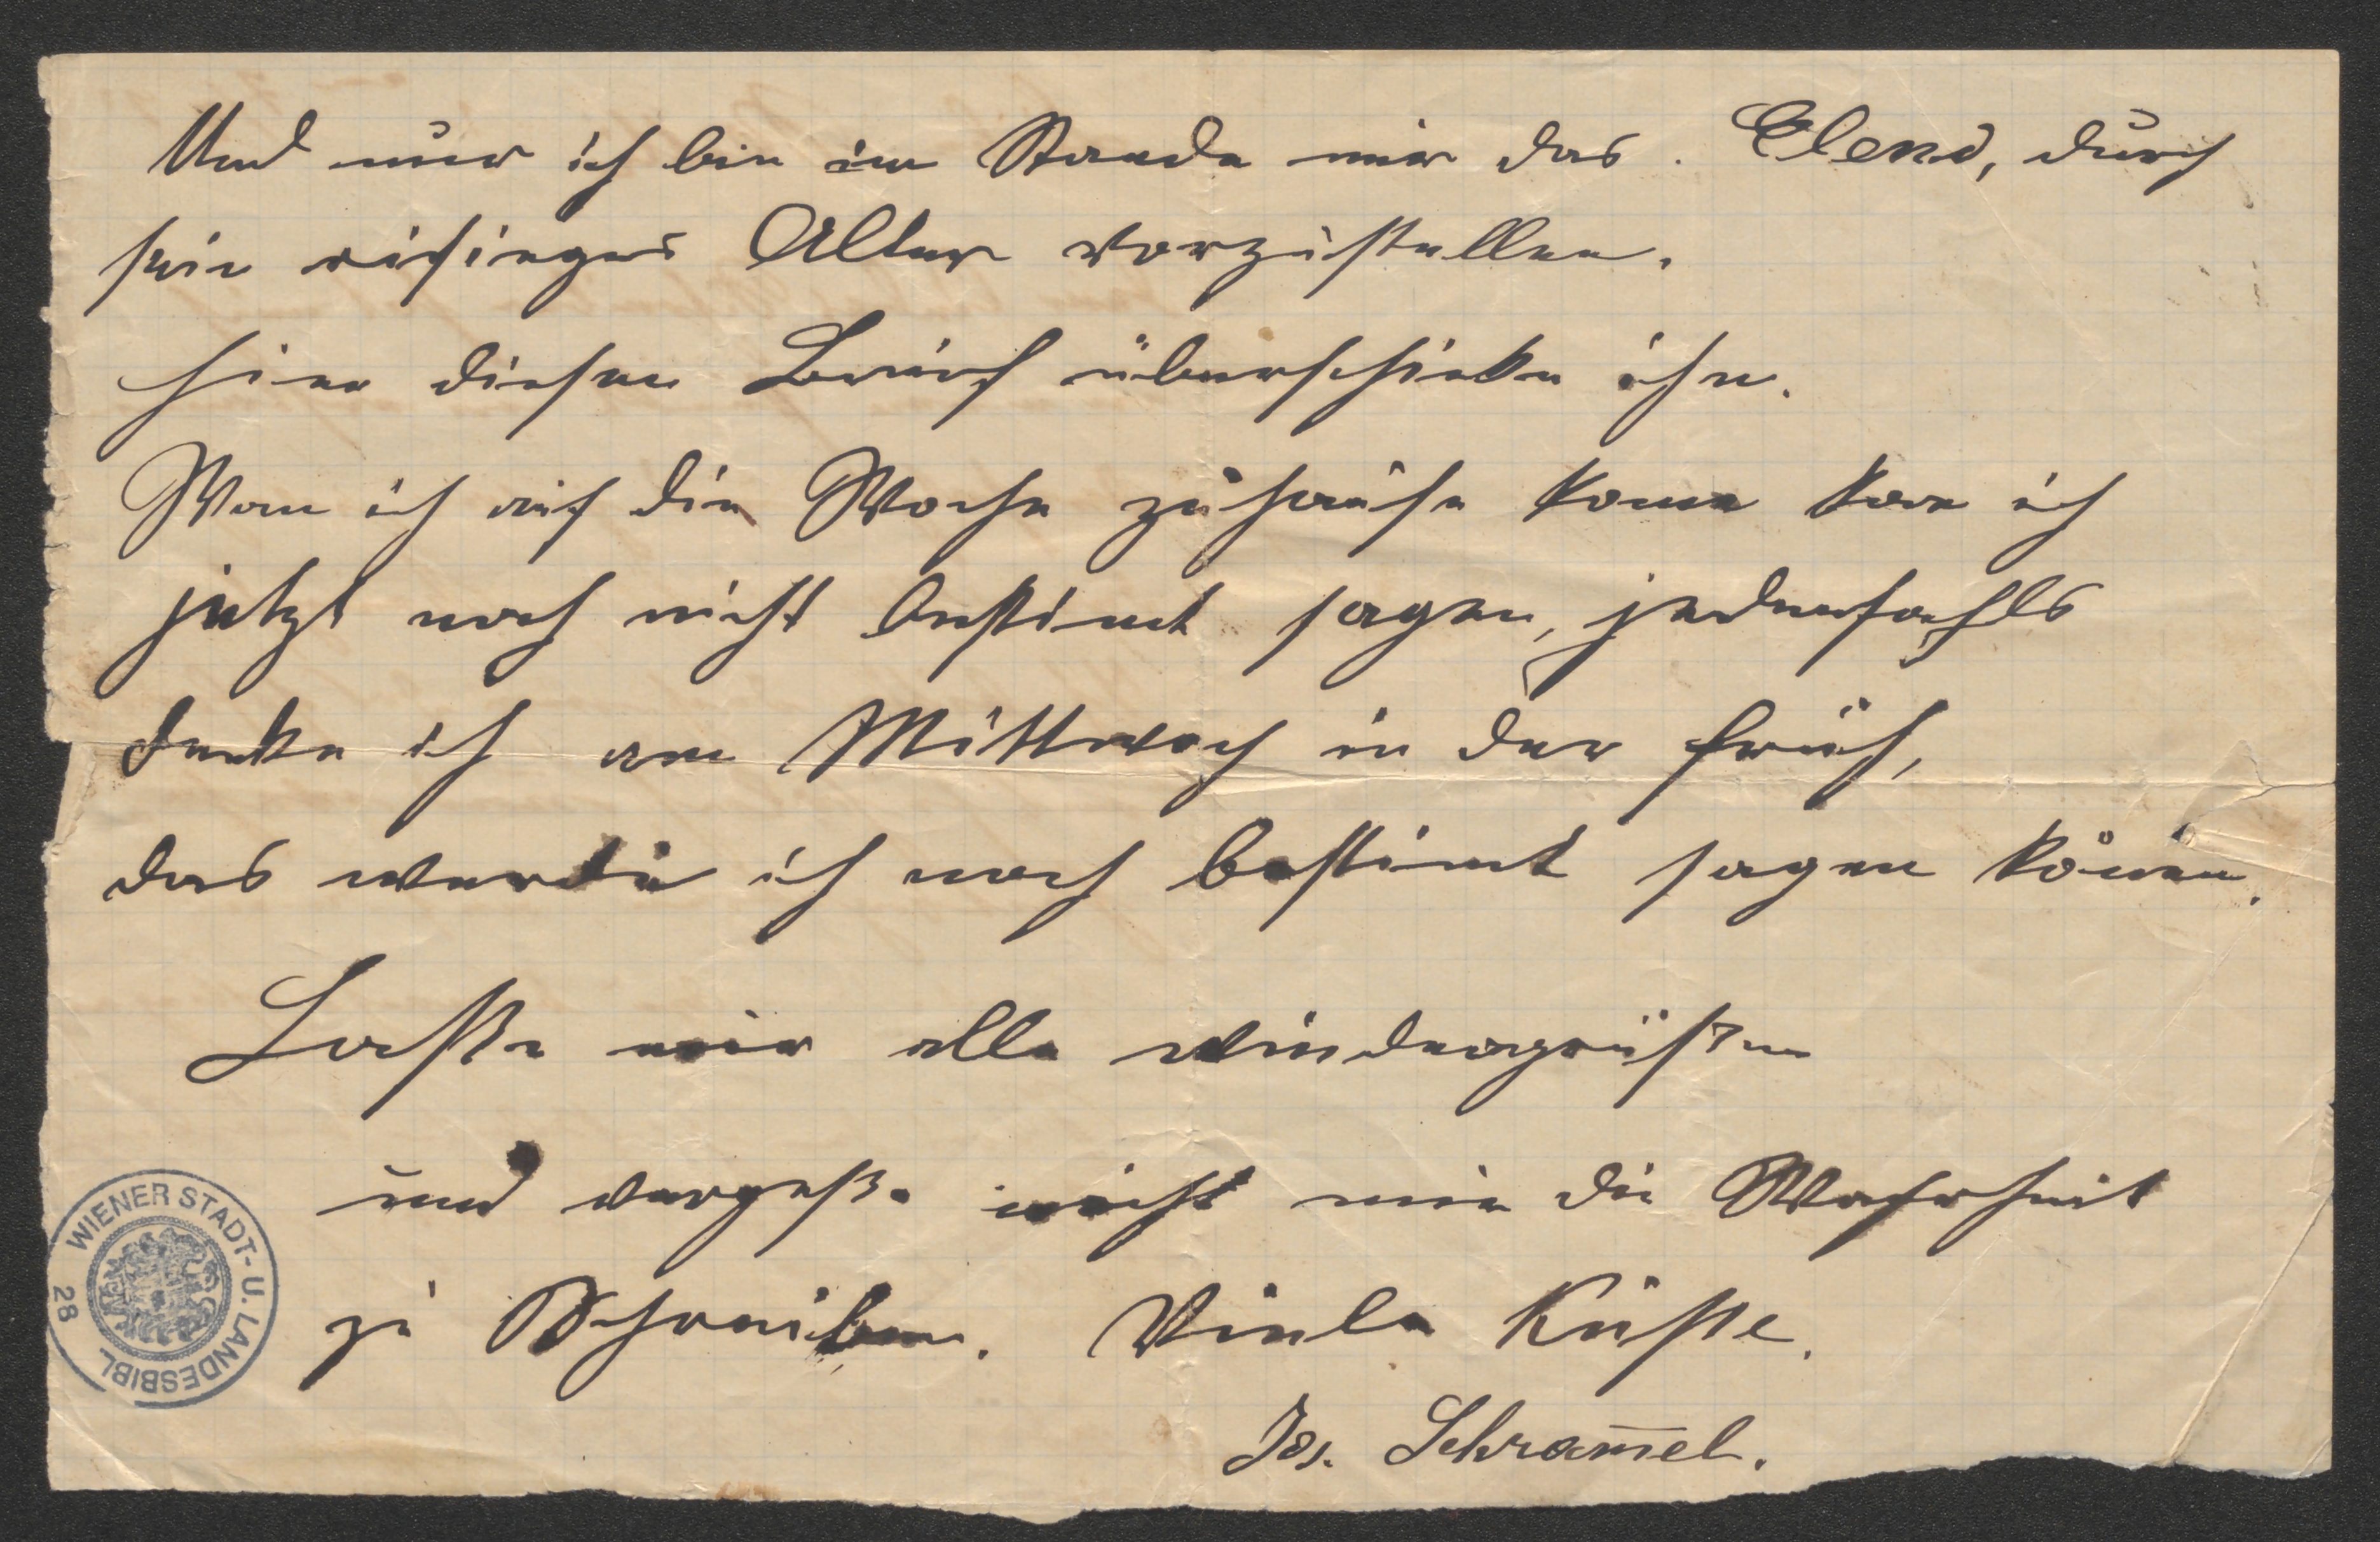 Und nur ich bin im Stande mir das Elend, durch
sein riesieges Alter vorzustellen.
Hier diesen Brief überschicke ihr.
Wan ich auf die Woche zuhause kome kan ich
jetzt noch nicht bestimt sagen, jedenfahls
denke ich am Mittwoch in der früh,
das werde ich noch bestimt sagen könen.
Lasse mir alle wiedergrüßen
und vergeße nicht mir die Wahrheit
zu Schreiben. Viele Küsse.
Jos. Schram̅el.
WIENER STADT- U. LANDESBIBL
28